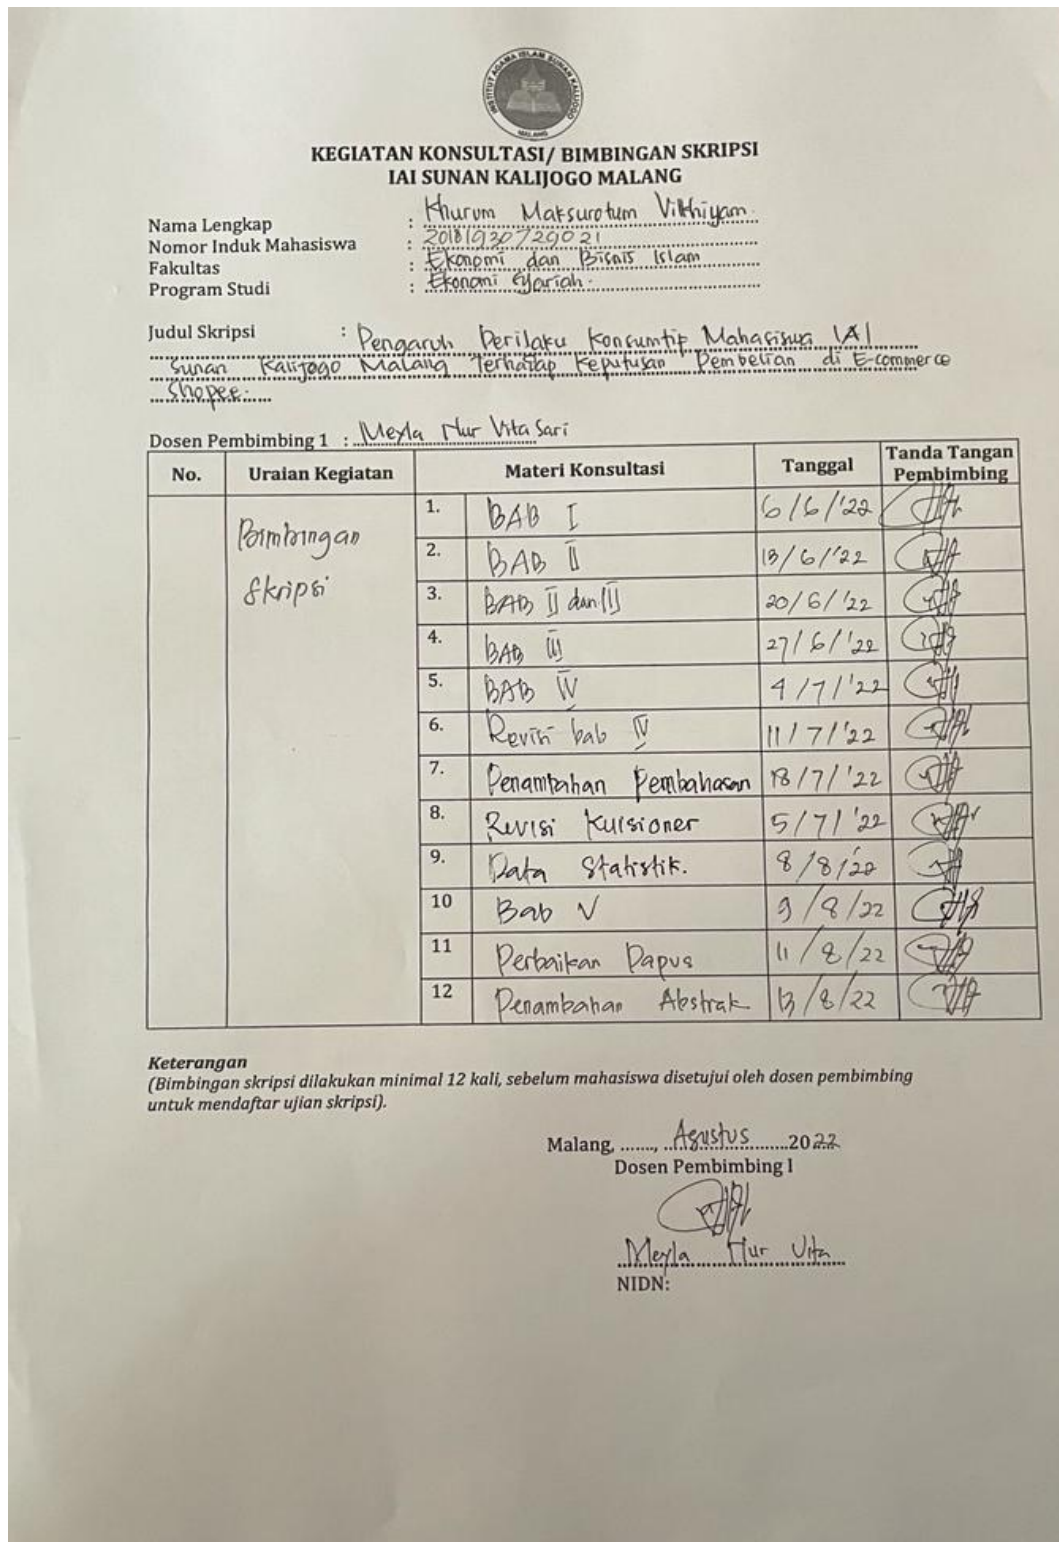 INSTITUT AGAMA ISLAM SUNAN KALIJOGO
MALANG
KEGIATAN KONSULTASI/ BIMBINGAN SKRIPSI
IAI SUNAN KALIJOGO MALANG
Nama Lengkap : Khurum Maksurotum Vilkhiyam.
Nomor Induk Mahasiswa : 20181930729021
Fakultas : Ekonomi dan Bisnis Islam
Program Studi : Ekonomi Syariah.
Judul Skripsi : Pengaruh Perilaku Konsumtip Mahasiswa IAI
Sunan Kalijogo Malang Terhadap Keputusan Pembelian di E-commerce
Shopee.
Dosen Pembimbing 1 : Meyla Nur Vita Sari
No. Uraian Kegiatan Materi Konsultasi Tanggal Tanda Tangan Pembimbing
Bimbingan Skripsi
1. BAB I 6/6/'22
2. BAB II 13/6/'22
3. BAB II dan III 20/6/'22
4. BAB III 27/6/'22
5. BAB IV 4/7/'22
6. Revisi bab IV 11/7/'22
7. Penambahan Pembahasan 18/7/'22
8. Revisi Kuisioner 5/7/'22
9. Data Statistik. 8/8/'22
10 Bab V 9/8/22
11 Perbaikan Dapus 11/8/22
12 Penambahan Abstrak 13/8/22
Keterangan
(Bimbingan skripsi dilakukan minimal 12 kali, sebelum mahasiswa disetujui oleh dosen pembimbing
untuk mendaftar ujian skripsi).
Malang, ......., Agustus 2022
Dosen Pembimbing I
Meyla Nur Vita
NIDN: